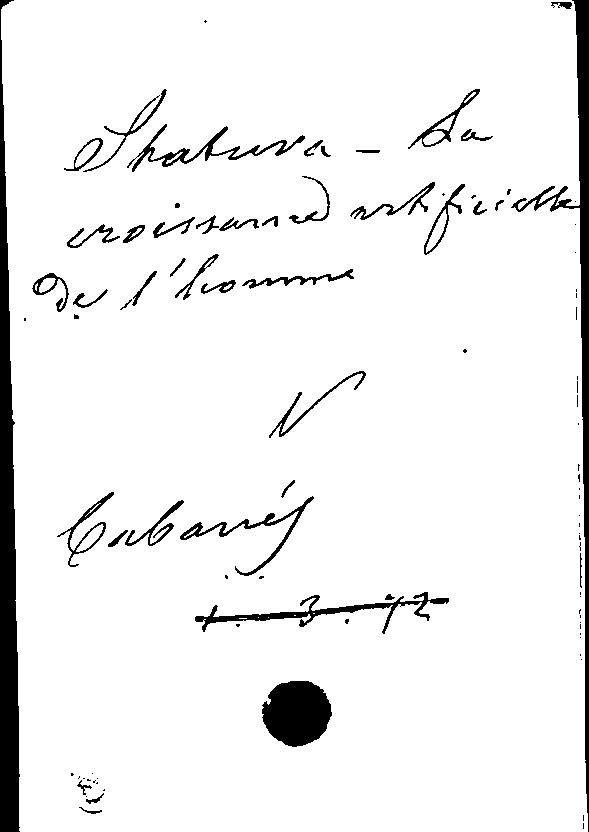 Skatuva - La
croissance artificielle
de l'homme
N
Cabanés
1. 3. 72